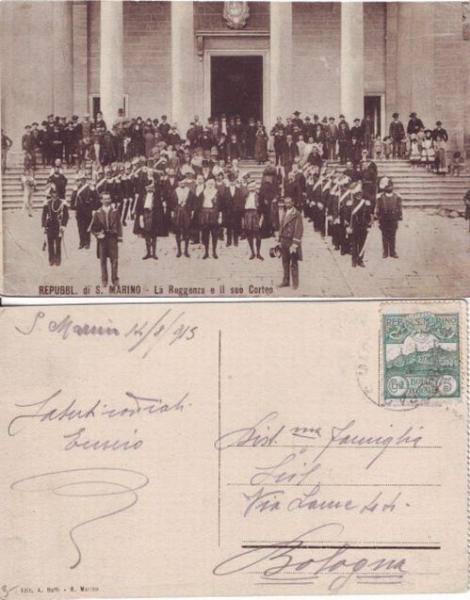 REPUBBL. di S. MARINO - La Reggenza e il suo Corteo
S. Marino 14/8/915
Saluti cordiali
Ennio
REP. S. MARINO
5
Dist. ma famiglia
Via
Bologna
Edit. A. Reffi - S. Marino